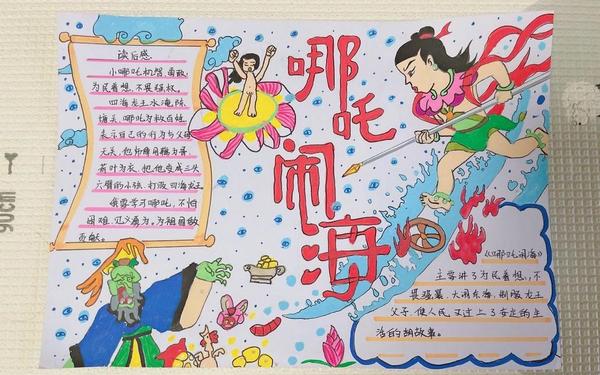 读后感
小哪吒机智勇敢,
为民着想,不畏强权。
四海龙王水淹陈
塘关,哪吒为救百姓,
表示自己的行为与父母
无关,他
荷叶为衣,把他变成三头
六臂的小孩,打败四海龙王
我要学习哪吒,不怕
困难,见义勇为,为祖国做
贡献。
哪吒闹海
《哪吒闹海》
主要讲了为民着想,不
畏强暴,大闹东海,制服龙王
父子,使人民又过上了安定的生
活的故事。
90cm